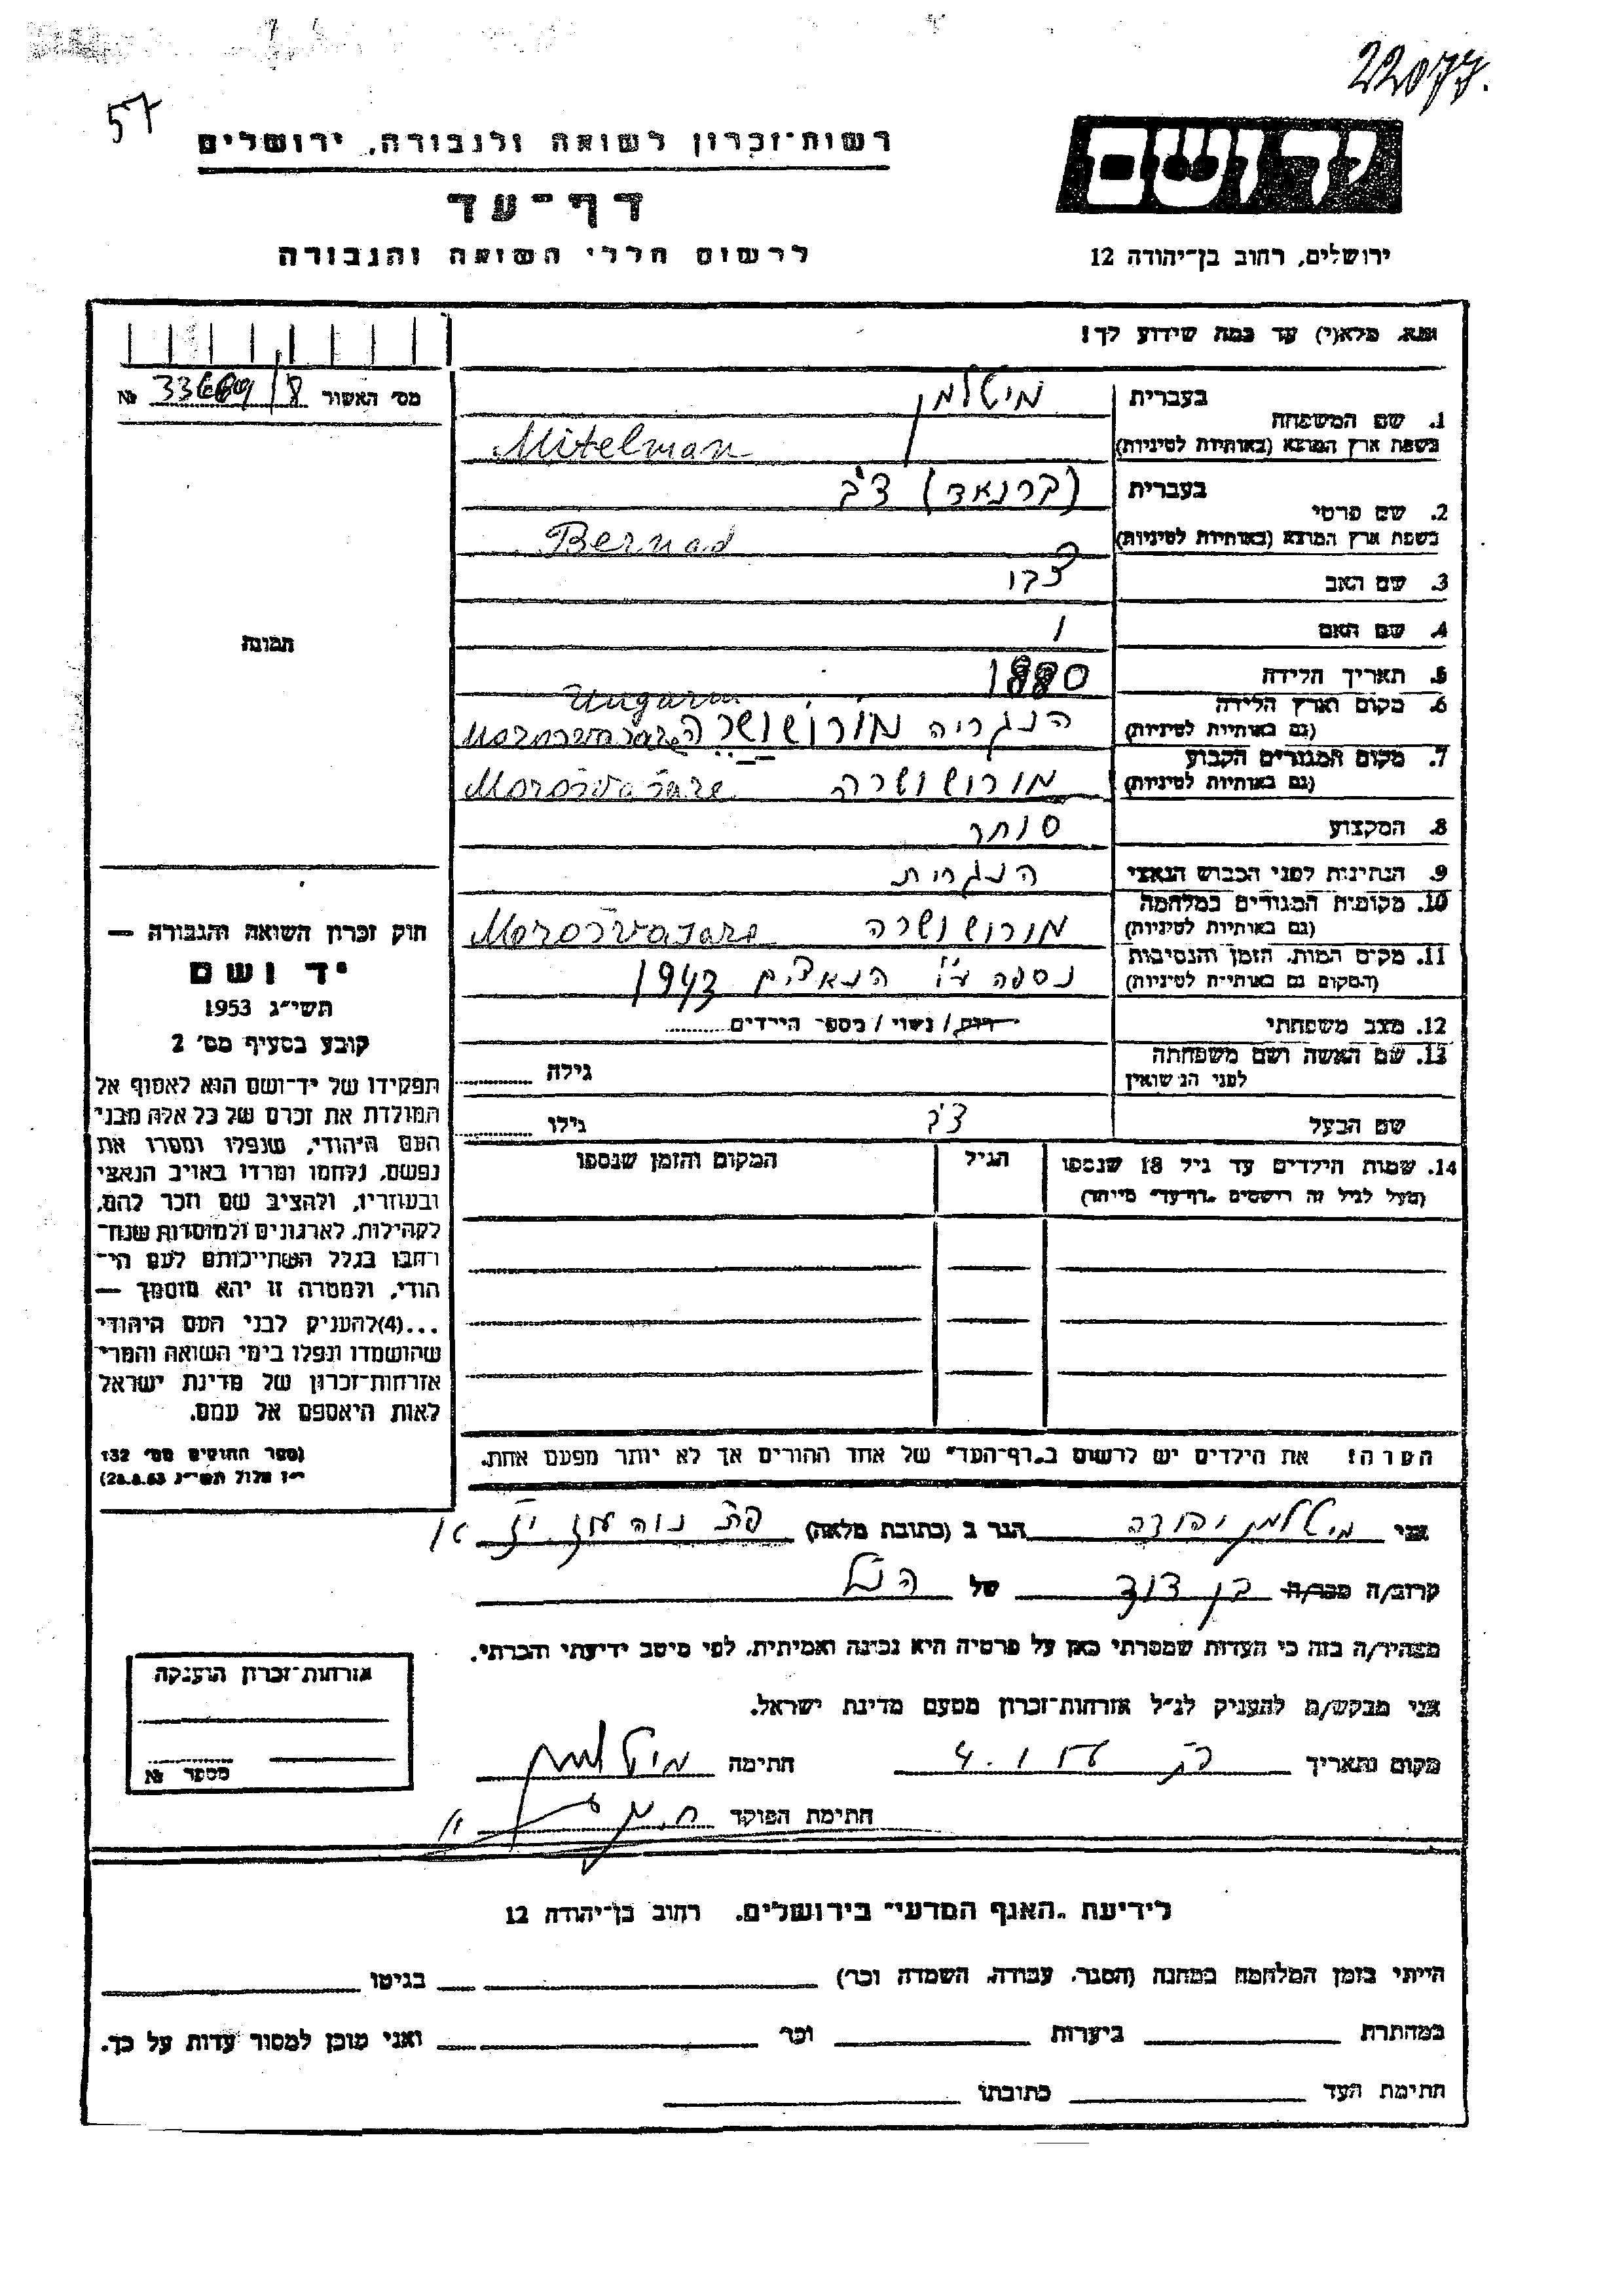 22077.
57
רשות־זכרון לשואה ולגבורה, ירושלים
יד ושם
דף־עד
לרשום חללי השואה והגבורה
ירושלים, רחוב בן־יהודה 12
נא מלא(י) עד כמה שידוע לך!
מס׳ האשור №
1. שם המשפחה
בעברית מיטלמן
בשפת ארץ המוצא (באותיות לטיניות) Mitelman
2. שם פרטי
בעברית (ברנאד)
בשפת ארץ המוצא (באותיות לטיניות) Bernad
3. שם האב
4. שם האם
5. תאריך הלידה 1880
6. מקום וארץ הלידה הנגריה מורושושרה
(גם באותיות לטיניות) Ungarn
7. מקום המגורים הקבוע מורושושרה
(גם באותיות לטיניות) Morošvašare
8. המקצוע סוחר
9. הנתינות לפני הכבוש הנאצי הנגרית
10. מקומות המגורים במלחמה מורושושרה
(גם באותיות לטיניות) Morošvašare
11. מקום המות, הזמן והנסיבות נספה ע״י הנאצים 1943
(המקום גם באותיות לטיניות)
12. מצב משפחתי רווק / נשוי / מספר הילדים
13. שם האשה ושם משפחתה
לפני הנישואין
גילה
שם הבעל
גילו
14. שמות הילדים עד גיל 18 שנספו
(מעל לגיל זה רושמים „דף־עד״ מיוחד)
הגיל
המקום והזמן שנספו
הערה! את הילדים יש לרשום ב„דף־העד״ של אחד ההורים אך לא יותר מפעם אחת.
תמונה
חוק זכרון השואה והגבורה —
יד ושם
תשי״ג 1953
קובע בסעיף מס׳ 2
תפקידו של יד־ושם הוא לאסוף אל
המולדת את זכרם של כל אלה מבני
העם היהודי, שנפלו ומסרו את
נפשם, נלחמו ומרדו באויב הנאצי
ובעוזריו, ולהציב שם וזכר להם,
לקהילות, לארגונים ולמוסדות שנח־
רבו בגלל השתייכותם לעם הי־
הודי, ולמטרה זו יהא מוסמך —
...(4)להעניק לבני העם היהודי
שהושמדו ונפלו בימי השואה והמרי
אזרחות־זכרון של מדינת ישראל
לאות היאספם אל עמם.
(ספר החוקים מס׳ 132
י״ז אלול תשי״ג 28.8.53)
אני מיטלמן יהודה הגר ב (כתובת מלאה)
קרוב/ה מכר/ה בן דוד של הנ״ל
מצהיר/ה בזה כי העדות שמסרתי כאן על פרטיה היא נכונה ואמיתית, לפי מיטב ידיעתי והכרתי.
אני מבקש/ת להעניק לנ״ל אזרחות־זכרון מטעם מדינת ישראל.
מקום ותאריך
חתימה
חתימת הפוקד
אזרחות־זכרון הוענקה
מספר №
לידיעת „האגף המדעי״ בירושלים, רחוב בן־יהודה 12
הייתי בזמן המלחמה במחנה (הסגר, עבודה, השמדה וכו׳) בגיטו
במחתרת ביערות וכו׳ ואני מוכן למסור עדות על כך.
חתימת העד כתובתו